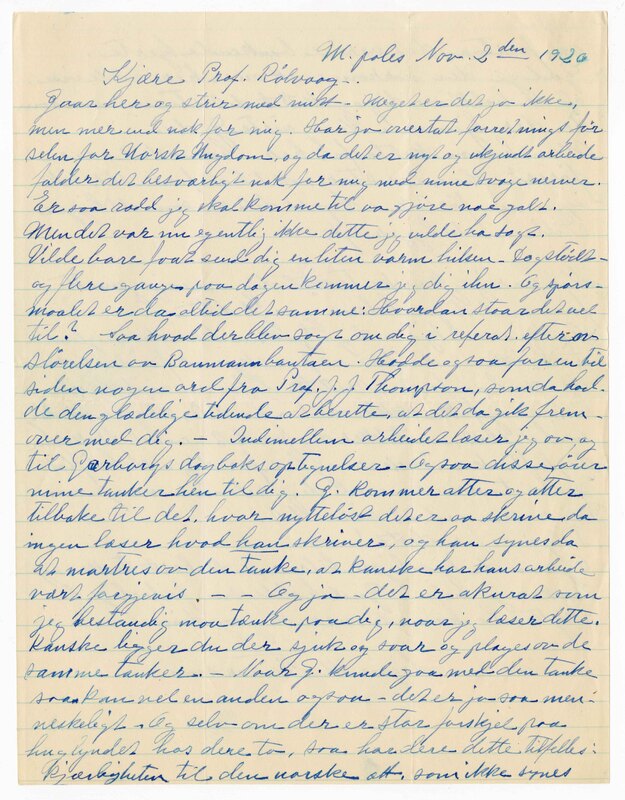 M. poles Nov. 2 den 1926
Kjære Prof. Rölvaag..
Gaar her og strir med mitt - Meget er det jo ikke,
men mer end nok for mig. Har jo overtat forretningsför
selen for Norsk Ungdom, og da det er nyt og ukjendt arbeide
falder det besværligt nok for mig med mine svage nerver.
Er saa rædd jeg skal komme til aa gjöre noe galt.
Men det var nu egentlig ikke dette jeg vilde ha sagt.
Vilde bare faat send dig en liten varm hilsen - Dagstödt -
og flere gange paa dagen kommer jeg dig ihu. Og spörs-
maalet er da altid det samme: Hvordan staar det vel
til? Saa hvad der blev sagt om dig i referat. efter av
slörelsen av Baumannbautaen. Hadde ogsaa for en tid
siden nogen ord fra Prof. J. J. Thompson, som da had-
de den glædelige tidende at berette, at det da gik frem-
over med dig. - Indimellem arbeidet læser jeg av og
til Garborgs dagboksoptegnelser - Ogsaa disse förer
mine tanker hen til dig. G. kommer atter og atter
tilbake til det, hvor nytteløst det er aa skrive da
ingen læser hvad han skriver, og han synes da
at martres av den tanke, at kanske har hans arbeide
vært forgjevis. - - Og ja - det er akurat som
jeg bestandig maa tænke paa dig, naar jeg læser dette.
Kanske ligger du der sjuk og saar og plages av de
samme tanker. - Naar G. kunde gaa med den tanke
saa kan vel en anden ogsaa - det er jo saa men-
neskeligt - Og selv om der er stor forskjel paa
huglyndet hos dere to, saa har dere dette tilfelles:
Kjærligheten til den norske ætt, som ikke synes